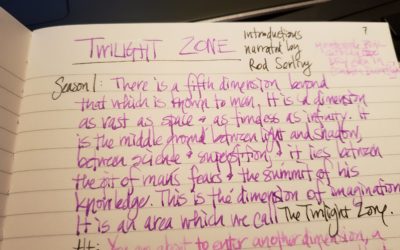 TWILIGHT ZONE
introductions
narrated by
Rod Serling
7
Season 1: There is a fifth dimension beyond
that which is known to man. It is a dimension
as vast as space & as timeless as infinity. It
is the middle ground between light and shadow,
between science & superstition, & it lies between
the pit of man's fears & the summit of his
knowledge. This is the dimension of imagination.
It is an area which we call The Twilight Zone.
Alt: You're about to enter another dimension, a